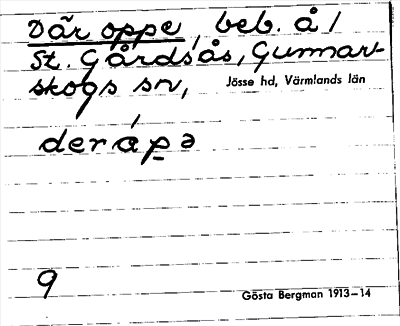 Där oppe, beb. å /
St. Gårdsås, Gunnar-
skogs sn, Jösse hd, Värmlands län
der ápə
9
Gösta Bergman 1913–14